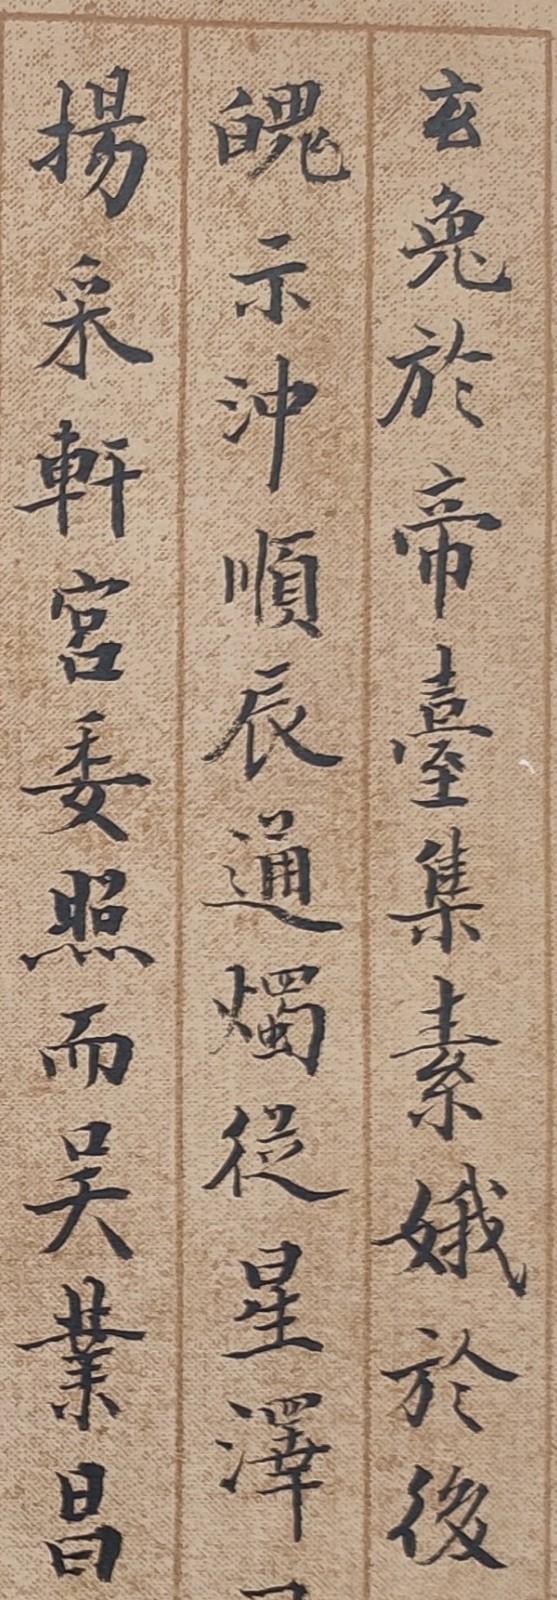 玄兔於帝臺集素娥於後
魄示沖順辰通燭從星澤
揚采軒宮委照而吳業昌